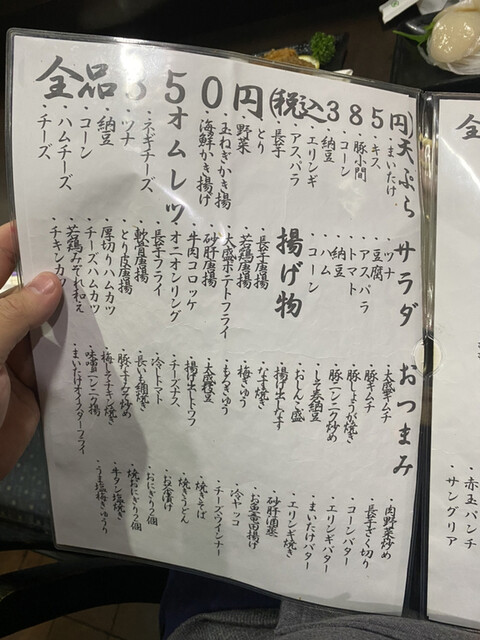 全品350円(税込385円)
天ぷら
・まいたけ
・キス
・豚小間
・コーン
・納豆
・エリンギ
・アスパラ
・長芋
・とり
・野菜
・玉ねぎかき揚げ
・海鮮かき揚げ
オムレツ
・ネギチーズ
・ツナ
・納豆
・コーン
・ハムチーズ
・チーズ
サラダ
・ツナ
・豆腐
・アスパラ
・トマト
・納豆
・ハム
・コーン
揚げ物
・長芋唐揚
・若鶏唐揚
・大盛ポテトフライ
・砂肝唐揚
・牛肉コロッケ
・オニオンリング
・長芋フライ
・軟骨唐揚
・とり皮唐揚
・厚切りハムカツ
・チーズハムカツ
・若鶏みぞれ和え
・チキンカツ
おつまみ
・大盛キムチ
・豚キムチ
・豚しょうが焼き
・豚ニンニク炒め
・しそ巻納豆
・おしんこ盛
・揚げ出しなす
・なす焼き
・梅きゅう
・もろきゅう
・大盛枝豆
・揚げ出しトウフ
・チーズナス
・冷トマト
・長いも鉄焼き
・豚キムチ炒め
・梅しそチキン焼き
・味噌ニンニク揚
・まいたけオイスターフライ
・肉野菜炒め
・長芋ざく切り
・コーンバター
・エリンギバター
・まいたけバター
・エリンギ焼き
・砂肝酒蒸
・お魚竜田揚げ
・冷ヤッコ
・チーズウインナー
・焼きそば
・焼きうどん
・お茶漬け
・おにぎり2個
・焼おにぎり2個
・牛タン塩焼き
・うま塩梅きゅうり
全
・赤玉パンチ
・サングリア